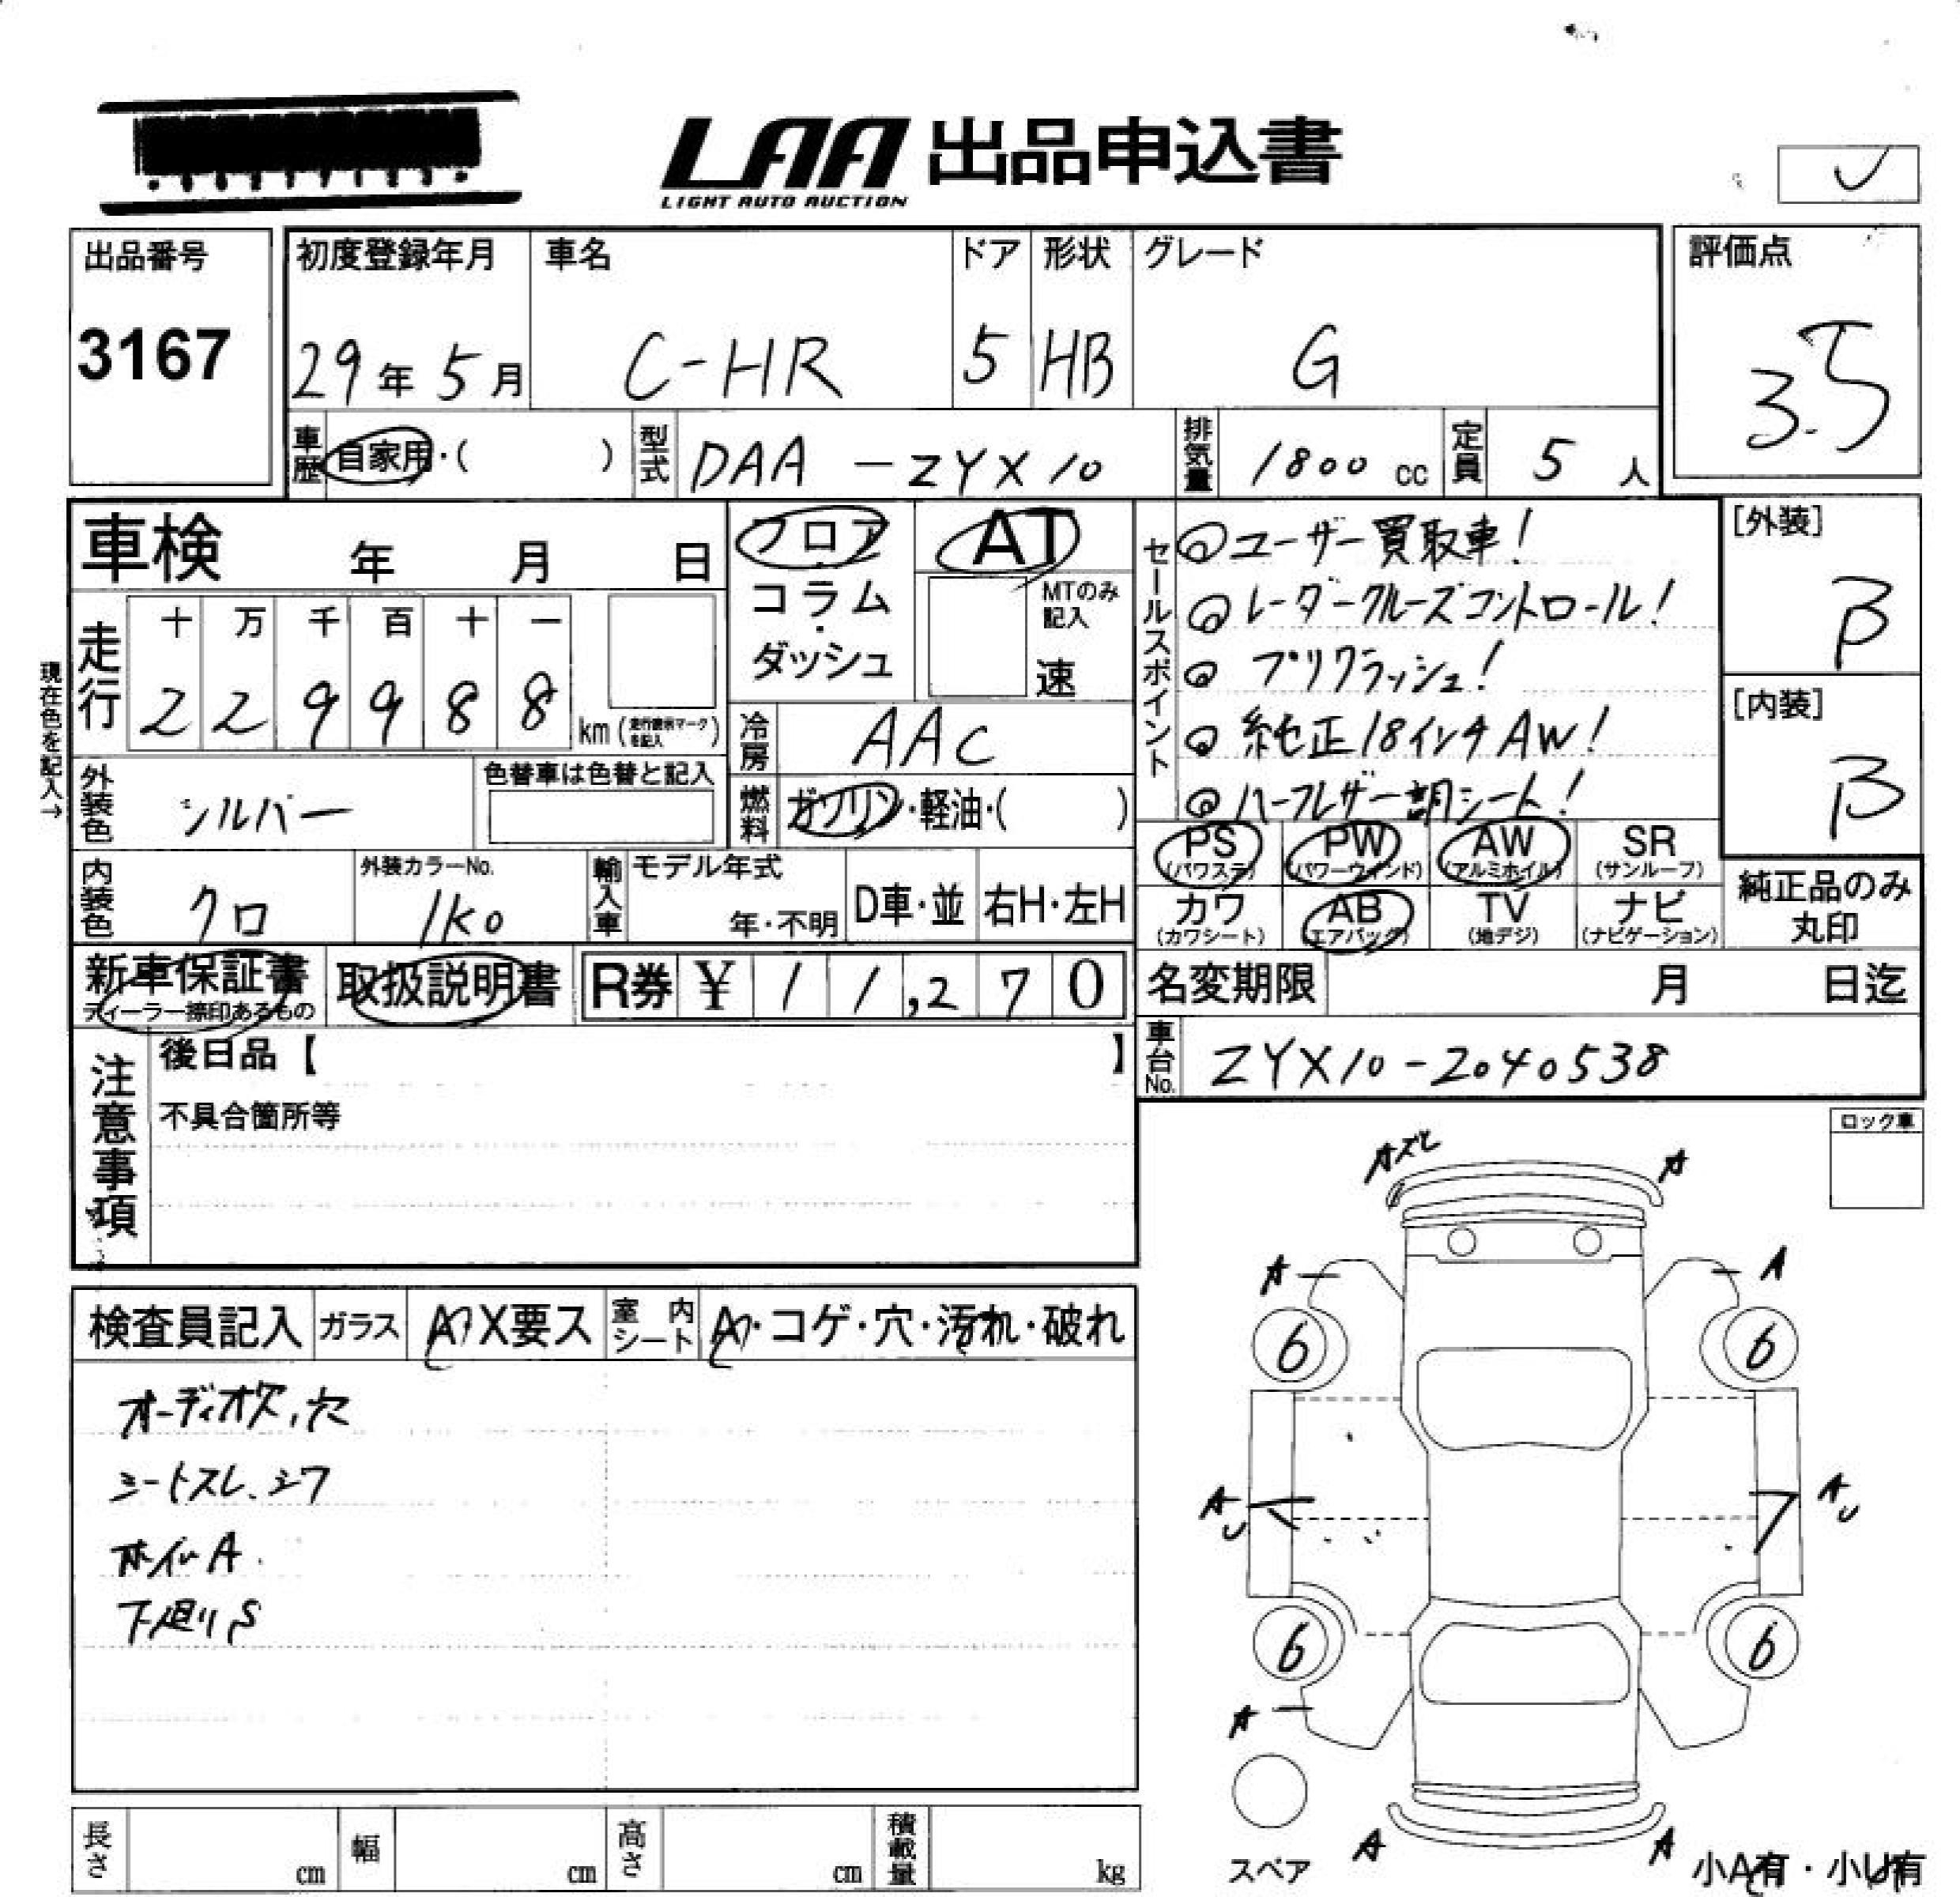 LAA 出品申込書
LIGHT AUTO AUCTION
出品番号
3167
初度登録年月
29年5月
車名
C-HR
ドア
5
形状
HB
グレード
G
評価点
3.5
車歴
自家用・( )
型式
DAA-ZYX10
排気量
1800 cc
定員
5人
車検 年 月 日
フロア
・
コラム
・
ダッシュ
AT
MTのみ
記入
速
セールスポイント
◎ユーザー買取車!
◎レーダークルーズコントロール!
◎プリクラッシュ!
◎純正18インチAW!
◎ハーフレザー調シート!
[外装]
B
[内装]
B
現在色を記入→
走行
十 万 千 百 十 一
2 2 9 9 8 8
km(走行距離マークを記入)
冷房
AAC
外装色
シルバー
色替車は色替と記入
燃料
ガソリン・軽油・( )
PS
(パワステ)
PW
(パワーウィンド)
AW
(アルミホイル)
SR
(サンルーフ)
カワ
(カワシート)
AB
(エアバッグ)
TV
(地デジ)
ナビ
(ナビゲーション)
純正品のみ
丸印
内装色
クロ
外装カラーNo.
1K0
輸入車
モデル年式
年・不明
D車・並
右H・左H
新車保証書
ディーラー捺印あるもの
取扱説明書
R券 ¥11,270
名変期限 月 日迄
車台No.
ZYX10-2040538
注意事項
後日品【 】
不具合箇所等
ロック車
検査員記入
ガラス
A・X要ス
室内シート
A・コゲ・穴・汚れ・破れ
オーディオ欠、穴
シートスレ、シワ
ホイルA
下廻りS
Aズレ
A
A
A
6
6
AU
AU
6
6
A
A
A
スペア
小A有・小U有
長さ cm
幅 cm
高さ cm
積載量 kg